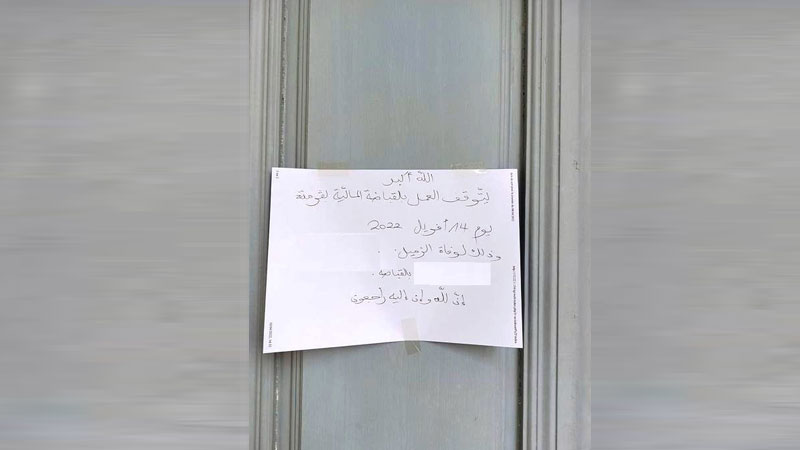 الله أكبر
يتوقف العمل بالقباضة المالية لقرمدة
يوم 14 أفريل 2022
وذلك لوفاة الزميل.
بالقباضة.
إنّ للّه وإن إليه راجعون